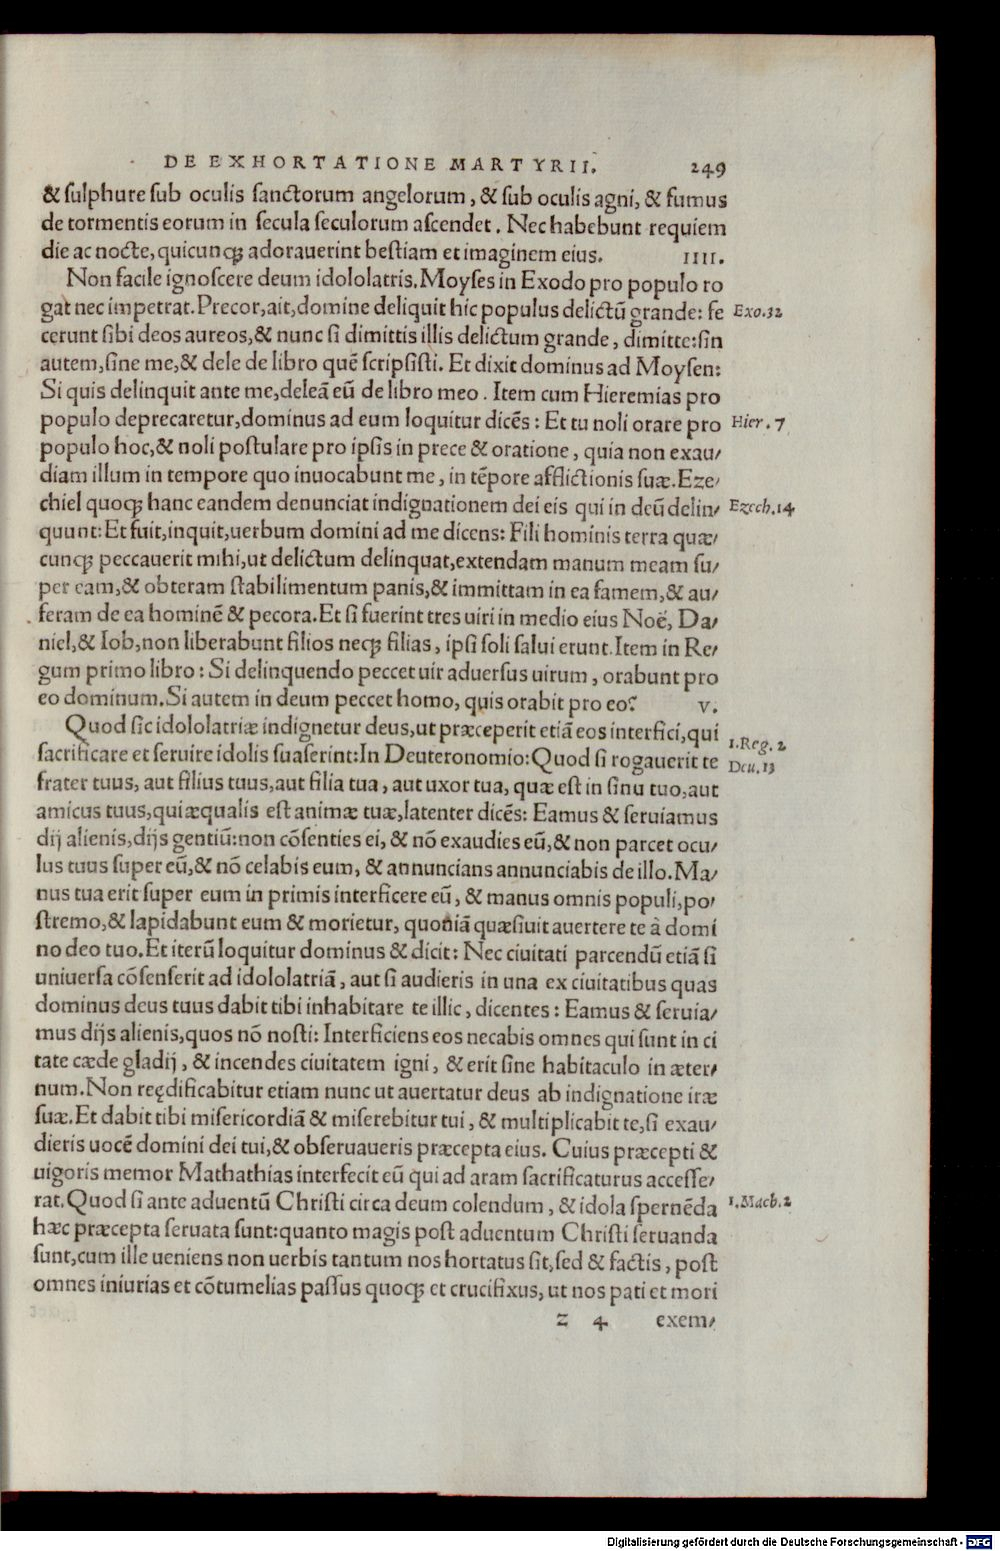 DE EXHORTATIONE MARTYRII. 249
& sulphure sub oculis sanctorum angelorum, & sub oculis agni, & fumus
de tormentis eorum in secula seculorum ascendet. Nec habebunt requiem
die ac nocte, quicunqꝫ adorauerint bestiam et imaginem eius. IIII.
Non facile ignoscere deum idololatris. Moyses in Exodo pro populo ro
gat nec impetrat. Precor, ait, domine deliquit hic populus delictũ grande: fe
Exo.32
cerunt sibi deos aureos, & nunc si dimittis illis delictum grande, dimitte: sin
autem, sine me, & dele de libro quẽ scripsisti. Et dixit dominus ad Moysen:
Si quis delinquit ante me, deleã eũ de libro meo. Item cum Hieremias pro
populo deprecaretur, dominus ad eum loquitur dicẽs: Et tu noli orare pro
Hier. 7
populo hoc, & noli postulare pro ipsis in prece & oratione, quia non exau/
diam illum in tempore quo inuocabunt me, in tẽpore afflictionis suæ. Eze/
chiel quoqꝫ hanc eandem denunciat indignationem dei eis qui in deũ delin/
Ezech.14
quunt: Et fuit, inquit, uerbum domini ad me dicens: Fili hominis terra quæ/
cunqꝫ peccauerit mihi, ut delictum delinquat, extendam manum meam su/
per eam, & obteram stabilimentum panis, & immittam in ea famem, & au/
feram de ea hominẽ & pecora. Et si fuerint tres uiri in medio eius Noë, Da/
niel, & Iob, non liberabunt filios neqꝫ filias, ipsi soli salui erunt. Item in Re/
gum primo libro: Si delinquendo peccet uir aduersus uirum, orabunt pro
eo dominum. Si autem in deum peccet homo, quis orabit pro eo? V.
Quod sic idololatriæ indignetur deus, ut præceperit etiã eos interfici, qui
1.Reg. 2
sacrificare et seruire idolis suaserint: In Deuteronomio: Quod si rogauerit te
Deu.13
frater tuus, aut filius tuus, aut filia tua, aut uxor tua, quæ est in sinu tuo, aut
amicus tuus, qui æqualis est animæ tuæ, latenter dicẽs: Eamus & seruiamus
dij alienis, dijs gentiũ: non cõsenties ei, & nõ exaudies eũ, & non parcet ocu/
lus tuus super eũ, & nõ celabis eum, & annuncians annunciabis de illo. Ma/
nus tua erit super eum in primis interficere eũ, & manus omnis populi, po/
stremo, & lapidabunt eum & morietur, quoniã quæsiuit auertere te à domi
no deo tuo. Et iterũ loquitur dominus & dicit: Nec ciuitati parcendũ etiã si
uniuersa cõsenserit ad idololatriã, aut si audieris in una ex ciuitatibus quas
dominus deus tuus dabit tibi inhabitare te illic, dicentes: Eamus & seruia/
mus dijs alienis, quos nõ nosti: Interficiens eos necabis omnes qui sunt in ci
tate cæde gladij, & incendes ciuitatem igni, & erit sine habitaculo in æter/
num. Non reędificabitur etiam nunc ut auertatur deus ab indignatione iræ
suæ. Et dabit tibi misericordiã & miserebitur tui, & multiplicabit te, si exau/
dieris uocẽ domini dei tui, & obseruaueris præcepta eius. Cuius præcepti &
uigoris memor Mathathias interfecit eũ qui ad aram sacrificaturus accesse/
rat. Quod si ante aduentũ Christi circa deum colendum, & idola spernẽda
1.Mach.2
hæc præcepta seruata sunt: quanto magis post aduentum Christi seruanda
sunt, cum ille ueniens non uerbis tantum nos hortatus sit, sed & factis, post
omnes iniurias et cõtumelias passus quoqꝫ et crucifixus, ut nos pati et mori
z 4 exem/
Digitalisierung gefördert durch die Deutsche Forschungsgemeinschaft - DFG